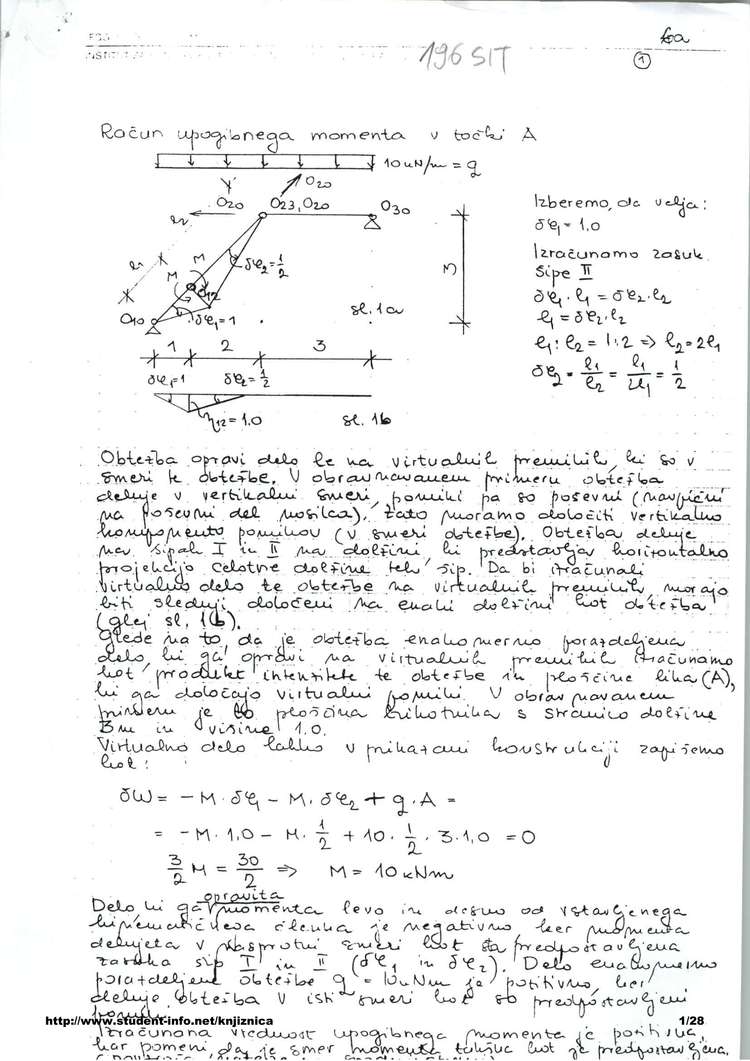 196 SIT
1
Račun upogibnega momenta v točki A
10 kN/m = q
O20
O20 O23, O20 O30
δφ2 = 1/2
M M
O12
O10 δφ1 = 1
sl. 1a
3
1 2 3
δφ1=1 δφ2=1/2
η12 = 1.0 sl. 1b
Izberemo, da velja:
δφ1 = 1.0
Izračunamo zasuk
šipe II
δφ1 · l1 = δφ2 · l2
l1 = δφ2 · l2
l1 : l2 = 1:2 => l2 = 2l1
δφ2 = l1/l2 = l1/2l1 = 1/2
Obtežba opravi delo le na virtualnih premikih, ki so v
smeri te obtežbe. V obravnavanem primeru obtežba
deluje v vertikalni smeri, pomiki pa so poševni (navpični
na poševni del nosilca), zato moramo določiti vertikalno
komponento pomikov (v smeri obtežbe). Obtežba deluje
na šipah I in II na dolžini ki predstavlja horizontalno
projekcijo celotne dolžine teh šip. Da bi izračunali
virtualno delo te obtežbe na virtualnih premikih, morajo
biti slednji določeni na enaki dolžini kot obtežba
(glej sl. 1b).
Glede na to, da je obtežba enakomerno porazdeljena
delo, ki ga opravi na virtualnih premikih izračunamo
kot produkt intenzitete te obtežbe in ploščine lika (A),
ki ga določajo virtualni pomiki. V obravnavanem
primeru je to ploščina trikotnika s stranico dolžine
3m in višine 1.0.
Virtualno delo lahko v prikazani konstrukciji zapišemo
kot:
δW = -M · δφ1 - M · δφ2 + q · A =
= -M · 1,0 - M · 1/2 + 10 · 1/2 · 3 · 1,0 = 0
3/2 M = 30/2 => M = 10 kNm
opravita
Delo ki ga momenta levo in desno od vstavljenega
kinematičnega členka je negativno, ker momenta
delujeta v nasprotni smeri kot sta predpostavljena
zasuka šip I in II (δφ1 in δφ2). Delo enakomerno
porazdeljene obtežbe q = 10 kNm je pozitivno, ker
deluje obtežba v isti smeri kot so predpostavljeni
http://www.student-info.net/knjiznica 1/28
Izračunana vrednost upogibnega momenta je pozitivna,
kar pomeni da je smer momenta takšna kot je predpostavljena.